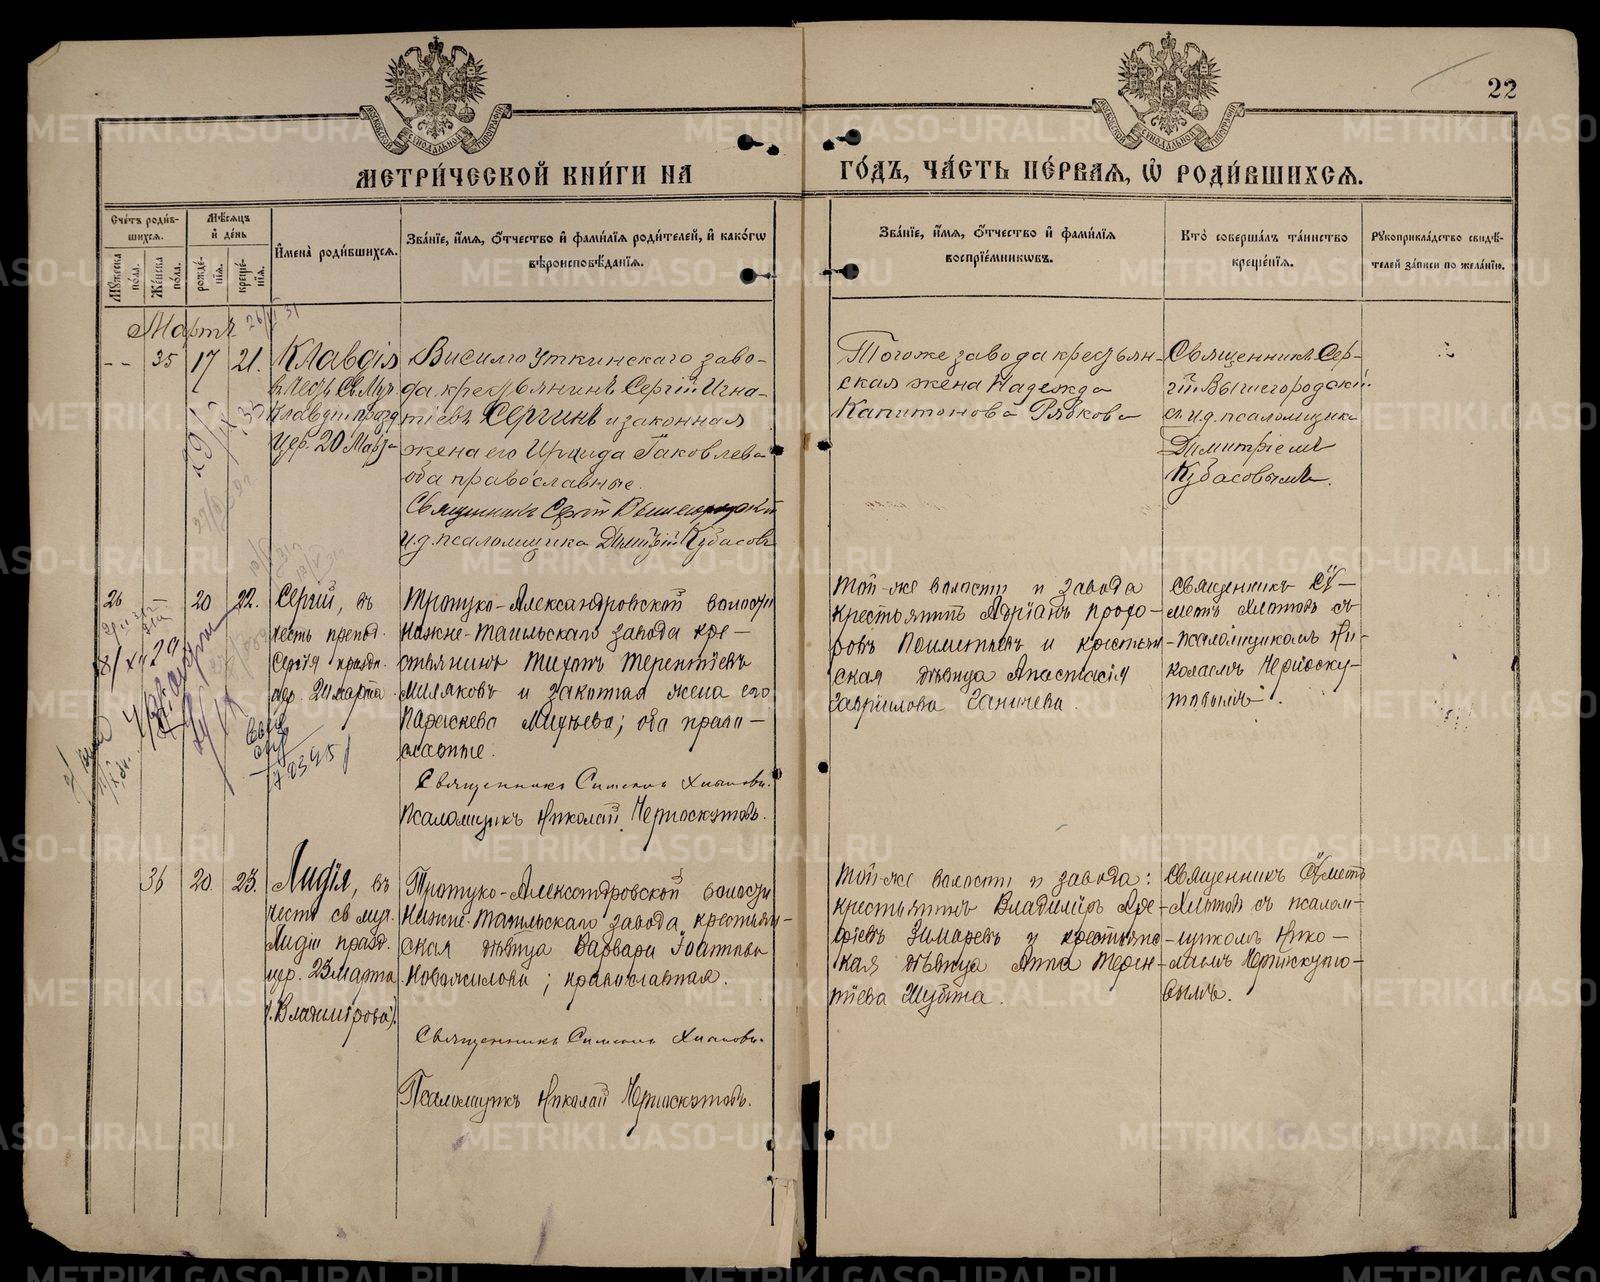 22
МЕТРИ́ЧЕСКОЙ КНИ́ГИ НА
ГО́ДЪ, ЧА́СТЬ ПЕ́РВАѦ, Ѡ҆ РОДИ́ВШИХСѦ.
Сче́тъ роди́в-
шихсѧ.
Мꙋ́жеска по́ла.
Же́нска по́ла.
Мѣ́сѧцъ и҆ де́нь
рожде́-
нїѧ.
креще́-
нїѧ.
И҆мена̀ роди́вшихсѧ.
Зва́нїе, и҆́мѧ, ѻ҆́тчество и҆ фами́лїѧ роди́телей, и҆ како́гѡ
вѣроисповѣ́данїѧ.
Зва́нїе, и҆́мѧ, ѻ҆́тчество и҆ фами́лїѧ
воспрїе́мникѡвъ.
Кто̀ соверша́лъ та́инство
креще́нїѧ.
Рꙋкоприкла́дство свидѣ́-
телей за́писи по жела́нїю.
Мартъ
-- 35 17 21.
Клавдія
в честь Св. Мц.
Клавдіи празд.
цер. 20 Марта
Висимо Уткинскаго заво-
да крестьянинъ Сергій Игна-
тіевъ Сергинъ и законная
жена его Ираида Іаковлева
оба православные.
Священникъ Сергій Вышегородскій
и.д. псаломщика Димитрій Кубасовъ
Тогоже завода крестьян-
ская жена Надежда
Капитонова Рябкова
Священникъ Сер-
гій Вышегородскій
съ и.д. псаломщика
Димитріемъ
Кубасовымъ.
26 20 22.
Сергій, въ
честь препод.
Сергія праздн.
цер. 20 марта
Троицко-Александровской волости
Нижне-Тагильскаго завода кре-
стьянинъ Тихонъ Терентіевъ
Миляковъ и законная жена его
Параскева Михѣева; оба право-
славные.
Священникъ Симеонъ Хлыновъ.
Псаломщикъ Николай Черноскутовъ.
Той-же волости и завода
крестьянинъ Адріанъ Прохо-
ровъ и крестьян-
ская дѣвица Анастасія
Гавріилова Ганичева.
Священникъ Сѵ-
меонъ Хлыновъ съ
псаломщикомъ Ни-
колаемъ Черноску-
товымъ.
36 20. 23.
Лидія, въ
честь св. муч.
Лидіи празд.
цер. 23 марта
(Владимірова).
Троицко-Александровской волости
Нижне-Тагильскаго завода крестьян-
ская дѣвица Варвара Іоаннова
Новожилова; православная.
Священникъ Симеонъ Хлыновъ.
Псаломщикъ Николай Черноскутовъ.
Той-же волости и завода:
крестьянинъ Владиміръ Аре-
фіевъ Зимаревъ и крестьянс-
кая дѣвица Анна Терен-
тіева Шубина.
Священникъ Сѵмеонъ
Хлыновъ съ псалом-
щикомъ Нико-
лаемъ Черноскуто-
вымъ.
METRIKI.GASO-URAL.RU